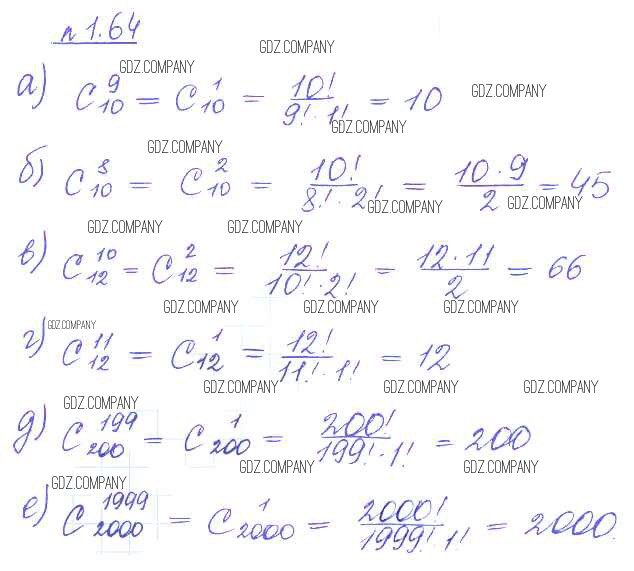 n 1.64
GDZ.COMPANY
GDZ.COMPANY
а) C₁₀⁹ = C₁₀¹ = 10!/(9!·1!) = 10
GDZ.COMPANY
GDZ.COMPANY
GDZ.COMPANY
б) C₁₀⁸ = C₁₀² = 10!/(8!·2!) = (10·9)/2 = 45
GDZ.COMPANY GDZ.COMPANY
GDZ.COMPANY GDZ.COMPANY
в) C₁₂¹⁰ = C₁₂² = 12!/(10!·2!) = (12·11)/2 = 66
GDZ.COMPANY GDZ.COMPANY GDZ.COMPANY
GDZ.COMPANY
г) C₁₂¹¹ = C₁₂¹ = 12!/(11!·1!) = 12
GDZ.COMPANY GDZ.COMPANY GDZ.COMPANY
GDZ.COMPANY
д) C₂₀₀¹⁹⁹ = C₂₀₀¹ = 200!/(199!·1!) = 200
GDZ.COMPANY GDZ.COMPANY
GDZ.COMPANY
е) C₂₀₀₀¹⁹⁹⁹ = C₂₀₀₀¹ = 2000!/(1999!·1!) = 2000.